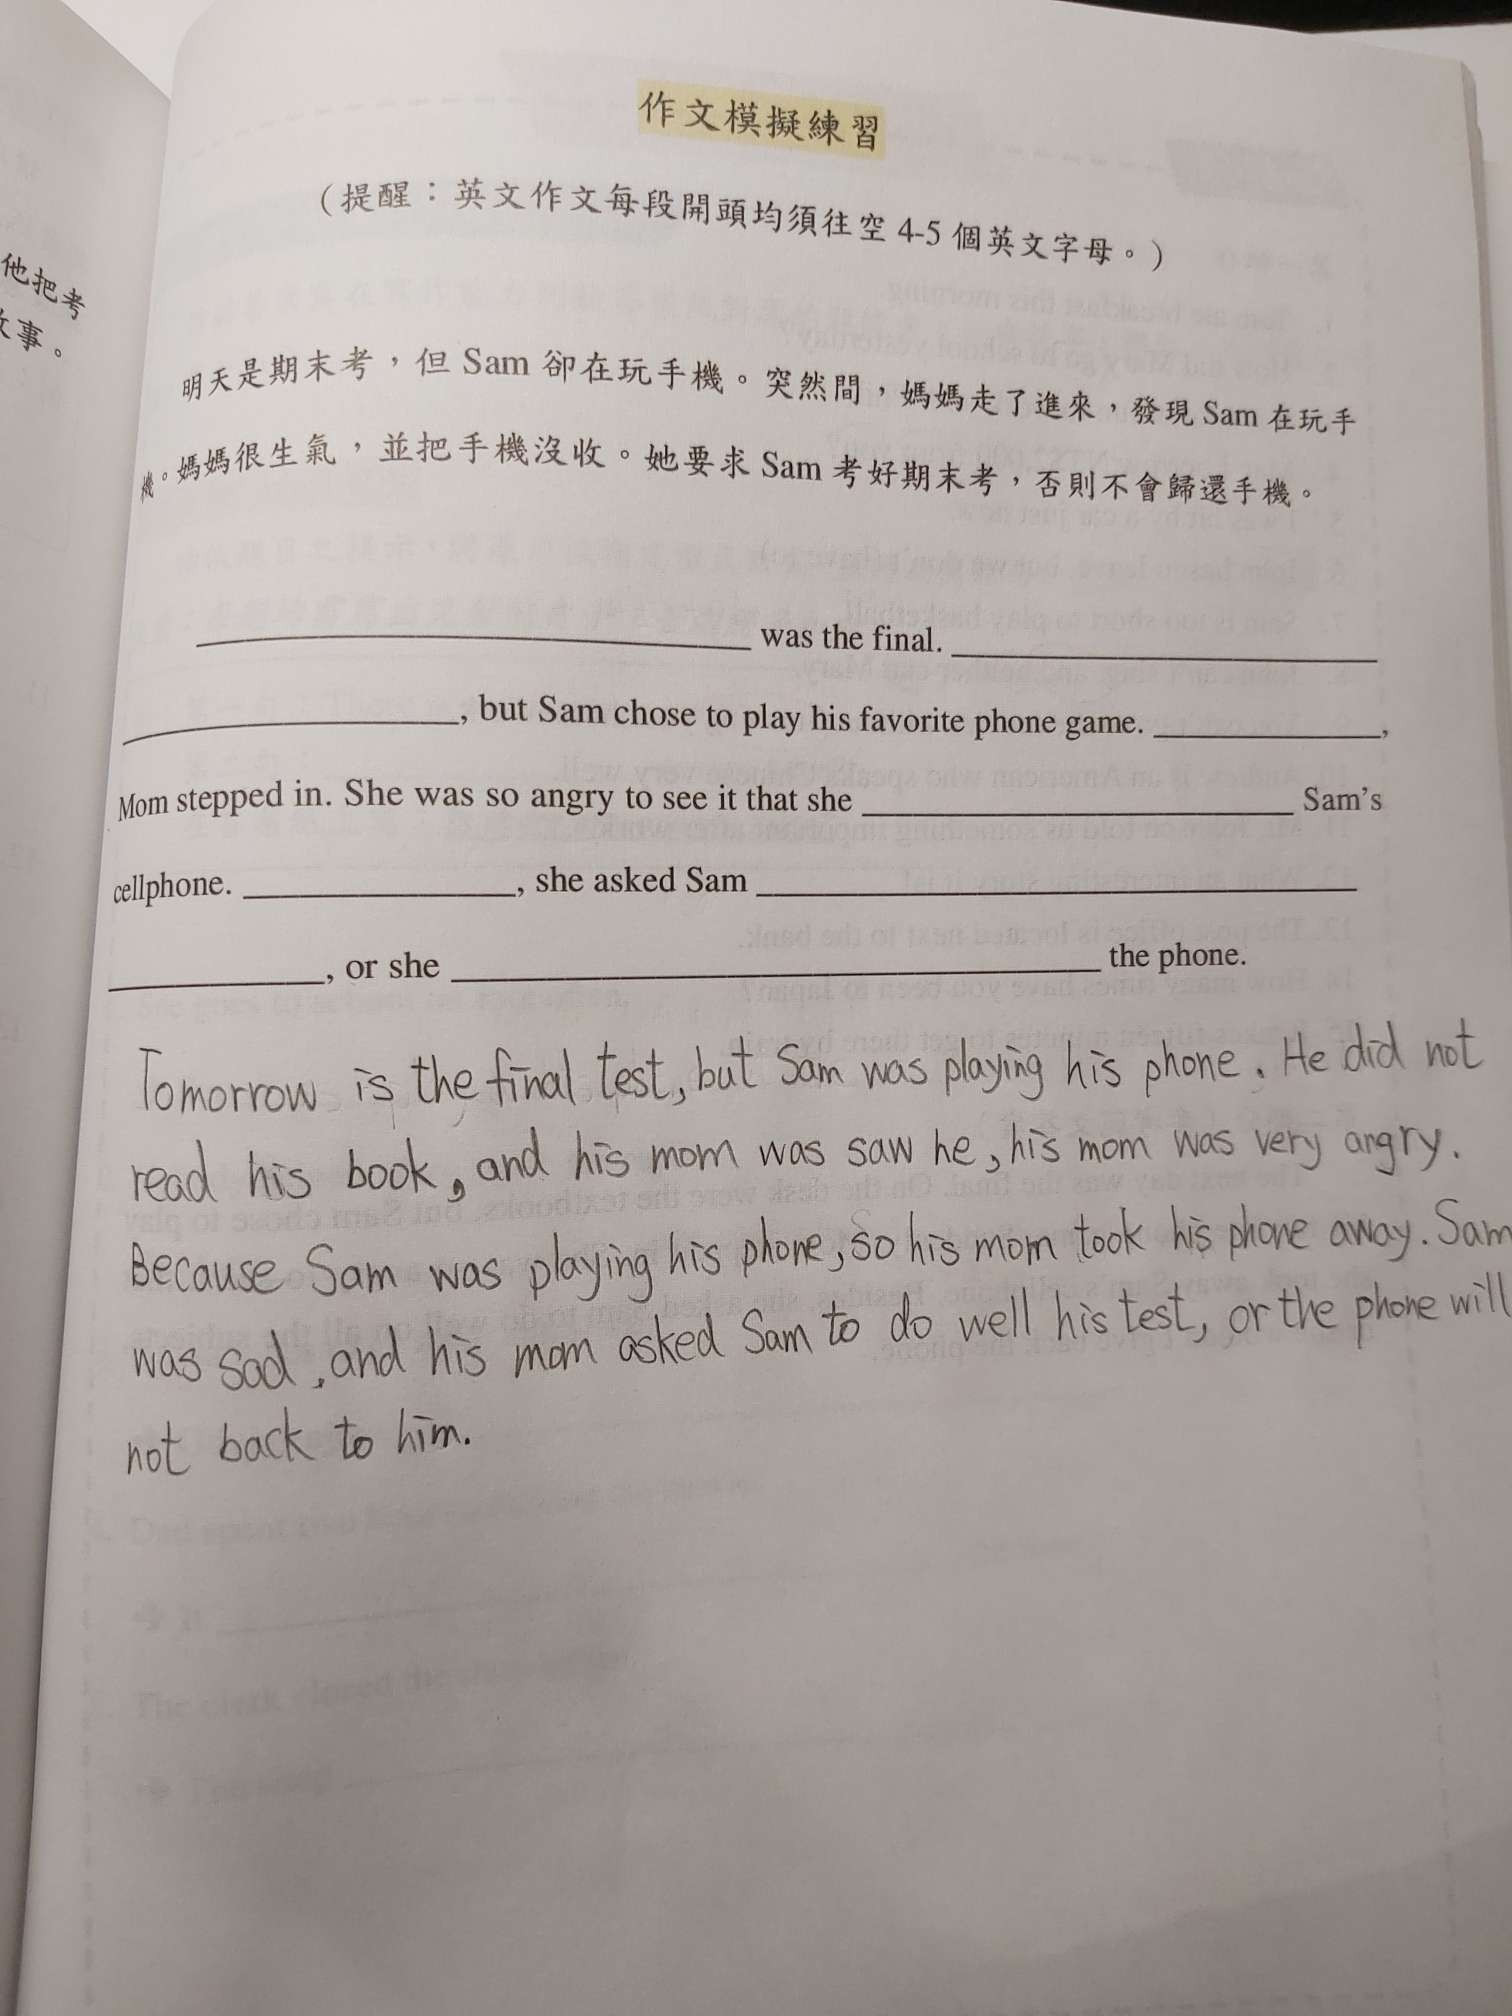 作文模擬練習
(提醒：英文作文每段開頭均須往空 4-5 個英文字母。)
他把考
事。
明天是期末考，但 Sam 卻在玩手機。突然間，媽媽走了進來，發現 Sam 在玩手
機。媽媽很生氣，並把手機沒收。她要求 Sam 考好期末考，否則不會歸還手機。
was the final.
, but Sam chose to play his favorite phone game. ,
Mom stepped in. She was so angry to see it that she Sam's
cellphone. , she asked Sam
, or she the phone.
Tomorrow is the final test, but Sam was playing his phone. He did not
read his book, and his mom was saw he, his mom was very angry.
Because Sam was playing his phone, so his mom took his phone away. Sam
was sad, and his mom asked Sam to do well his test, or the phone will
not back to him.